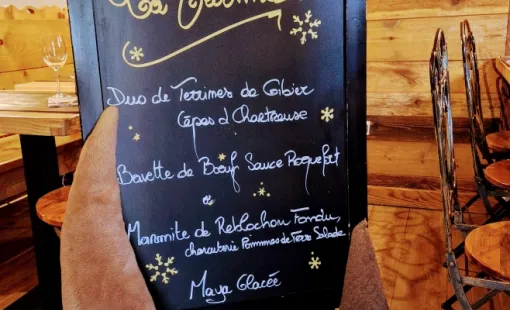 La
Duo de Terrines de Gibier
Cèpes d'Chartreuse
Bavette de Boeuf Sauce Roquefort
ou
Marmite de Reblochon Fondu,
charcuterie Pommes de Terre Salade
Maya Glacée